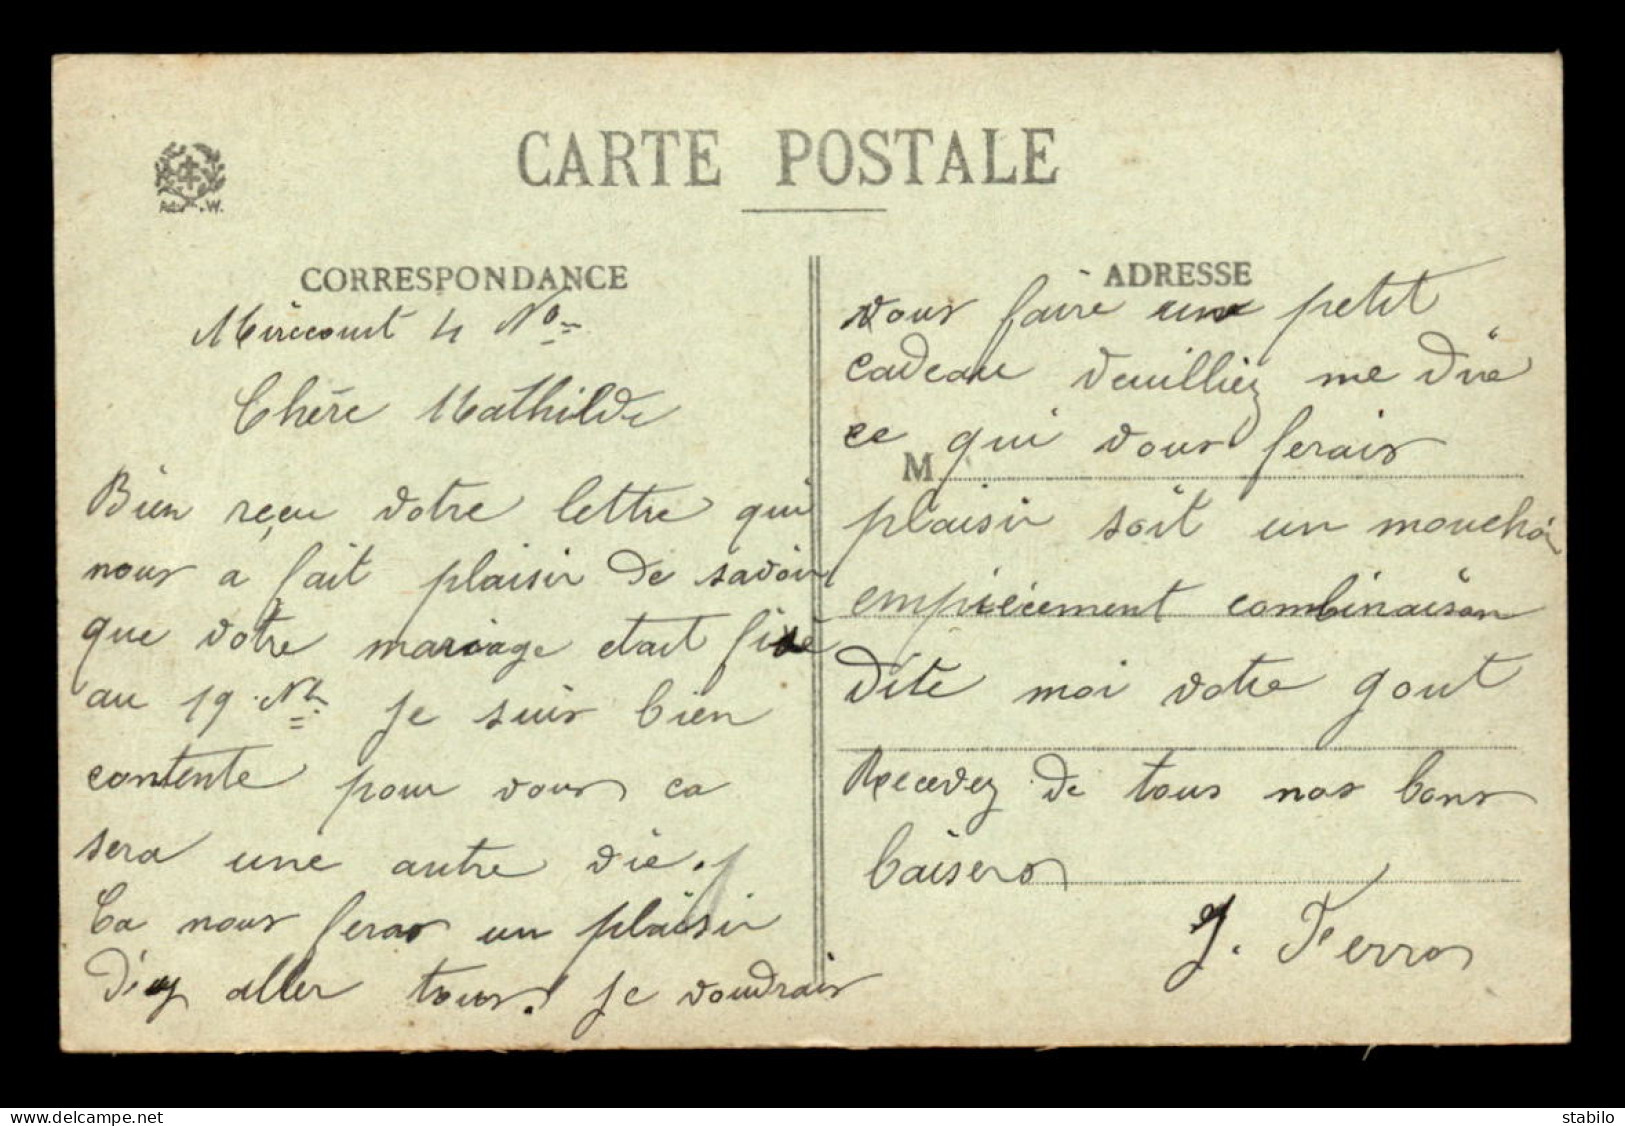 CARTE POSTALE
CORRESPONDANCE
Mirecourt 4 No
Chère Mathilde
Bien reçu votre lettre qui
nous a fait plaisir de savoir
que votre mariage etait fixé
au 19 Nb. Je suis bien
contente pour vous ca
sera une autre vie.
Ca nous feras un plaisir
d'y aller tous. Je voudrais
ADRESSE
vous faire un petit
cadeau veuilliez me dire
ce qui vous ferais
M
plaisir soit un mouchoir
empiécement combinaison
Dite moi votre gout
Recevez de tous nos bons
baisers
J. Ferro
www.delcampe.net
stabilo